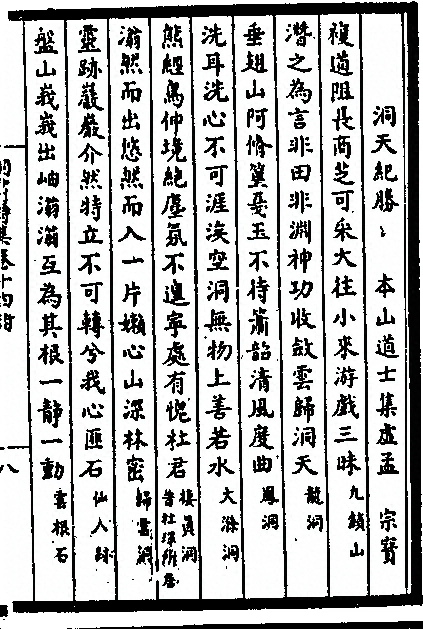 洞天紀勝〻 本山道士集虛孟 宗寶
複道阻長商芝可采大往小來游戲三昧 九鎖山
潛之為言非田非淵神功收斂雲歸洞天 龍洞
垂翅山阿脩翼戞玉不待簫韶清風度曲 鳳洞
洗耳洗心不可涯涘空洞無物上善若水 大滌洞
熊經鳥伸境絕塵氛不遑寧處有愧杜君 棲真洞 昔杜琛所居
滃然而出悠然而入一片嬾心山深林密 歸雲洞
靈跡巖巖介然特立不可轉兮我心匪石 仙人跡
盤山峩峩出岫滃滃互為其根一靜一動 雲根石
八